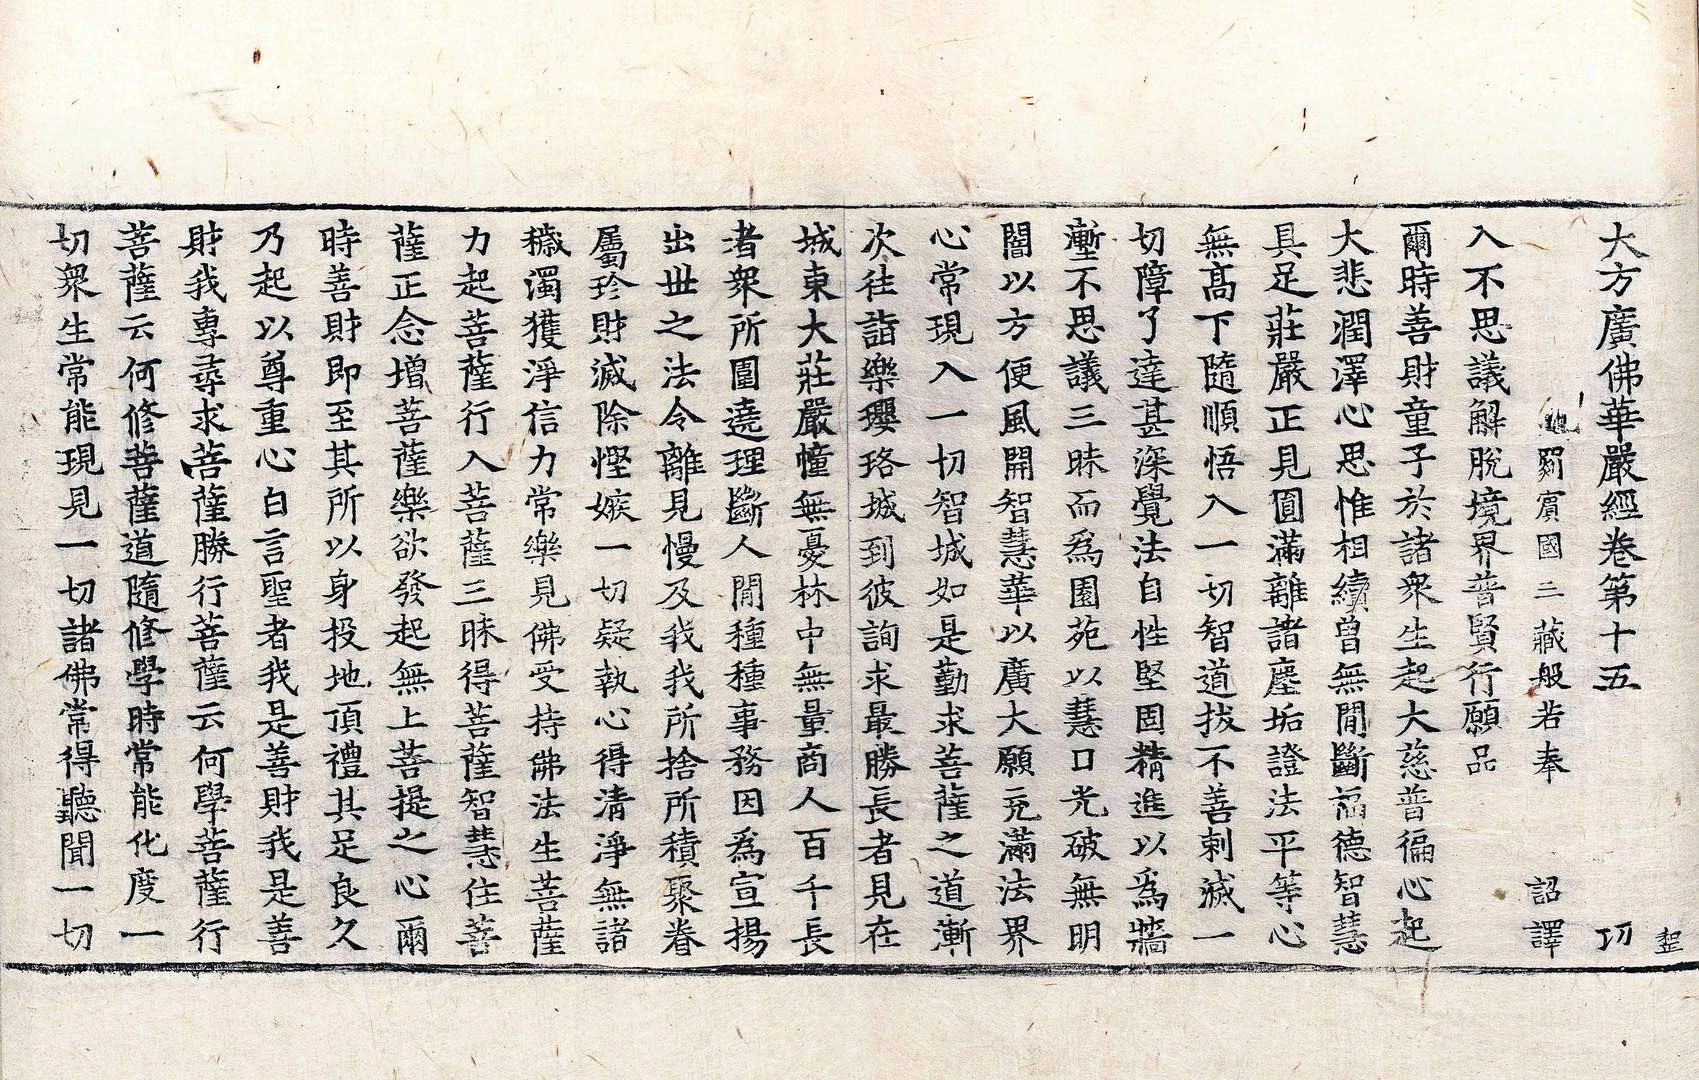 大方廣佛華嚴經卷第十五
罽賓國三藏般若奉 詔譯
入不思議解脫境界普賢行願品
爾時善財童子於諸衆生起大慈普徧心起
大悲潤澤心思惟相續曾無閒斷福德智慧
具足莊嚴正見圓滿離諸塵垢證法平等心
無高下隨順悟入一切智道拔不善刺滅一
切障了達甚深覺法自性堅固精進以爲牆
壍不思議三昧而爲園苑以慧日光破無明
闇以方便風開智慧華以廣大願充滿法界
心常現入一切智城如是勤求菩薩之道漸
次往詣樂瓔珞城到彼詢求最勝長者見在
城東大莊嚴幢無憂林中無量商人百千長
者衆所圍遶理斷人閒種種事務因爲宣揚
出世之法令離見慢及我我所捨所積聚眷
屬珍財滅除慳嫉一切疑執心得清淨無諸
穢濁獲淨信力常樂見佛受持佛法生菩薩
力起菩薩行入菩薩三昧得菩薩智慧住菩
薩正念增菩薩樂欲發起無上菩提之心爾
時善財即至其所以身投地頂禮其足良久
乃起以尊重心白言聖者我是善財我是善
財我專尋求菩薩勝行菩薩云何學菩薩行
菩薩云何修菩薩道隨修學時常能化度一
切衆生常能現見一切諸佛常得聽聞一切